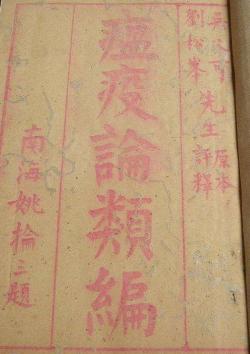 吳又可
劉松峯
先生
原本
評釋
瘟疫論類編
南海姚掄三題